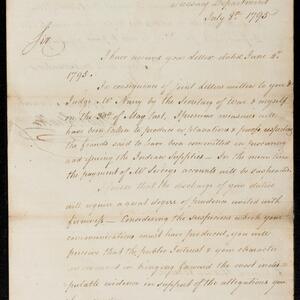 Treasury Department
July 8th 1795
Sir
I have received your letter dated June 4th
1795.
In consequence of joint letters written to you &
Judge McNairy by the Secretary of War & myself
on the 30th of May last, I presume measures will
have been taken to produce explanations & proofs respecting
the frauds said to have been committed in procuring
and issuing the Indian Supplies – In the mean time
the payment of Mr accounts will be suspended
that the discharge of your duties
will require a equal degree of prudence united with
firmness – Considering the suspicions which your
communications must have produced, you will
perceive that the public Interest & your character
are concerned in bringing forward the most indis-
putable evidence in support of the allegations you